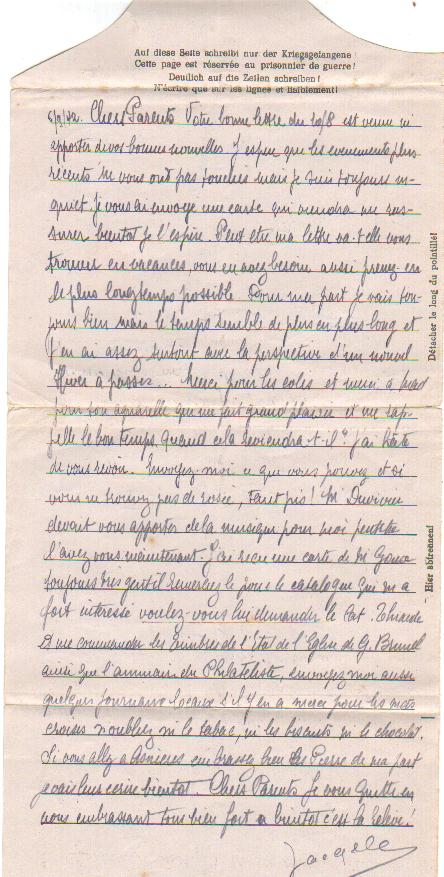 Auf diese Seite schreibt nur der Kriegsgefangene!
Cette page est réservée au prisonnier de guerre!
Deutlich auf die Zeilen schreiben!
N'écrire que sur les lignes et lisiblement!
Chers Parents Votre bonne lettre du 20/8 est venue m'
apporter de vos bonnes nouvelles. J'espère que les evenements plus
récents ne vous ont pas touchés mais je suis toujours in-
quiet. Je vous ai envoyé une carte qui viendra me ras-
surer bientot je l'espère. Peut etre ma lettre va-t-elle vous
trouver en vacances, vous en avez besoin aussi prenez-en
le plus longtemps possible. Pour ma part je vais tou-
jours bien mais le temps semble de plus en plus long et
j'en ai assez surtout avec la perspective d'un nouvel
Hiver à passer... Merci pour les colis et merci à
pour son aquarelle qui me fait grand plaisir et me rap-
pelle le bon temps. Quand cela reviendra-t-il? j'ai hâte
de vous revoir. Envoyez-moi ce que vous pouvez et si
vous ne trouvez pas de, Tant pis! Mr Duvivier
devait vous apporter de la musique pour moi peut etre
l'avez vous maintenant. J'ai reçu une carte de Mr
toujours très gentil remerciez le pour le catalogue qui m'a
fort interessé voulez-vous lui demander le Cat. Thiaude
et me commander les timbres de l'Etat de l'Eglise de G. Brunel
ainsi que l'annuaire du Philateliste, envoyez moi aussi
quelques journaux locaux s'il y en a merci pour les mots
croisés n'oubliez ni le tabac, ni les biscuits ni le chocolat.
Si vous allez a Asnieres embrassez bien les Pierre de ma part
je vais leur ecrire bientot. Chers Parents Je vous quitte en
vous embrassant tous bien fort a bientot c'est la relève!
Détacher le long du pointillé!
Hier abtrennen!